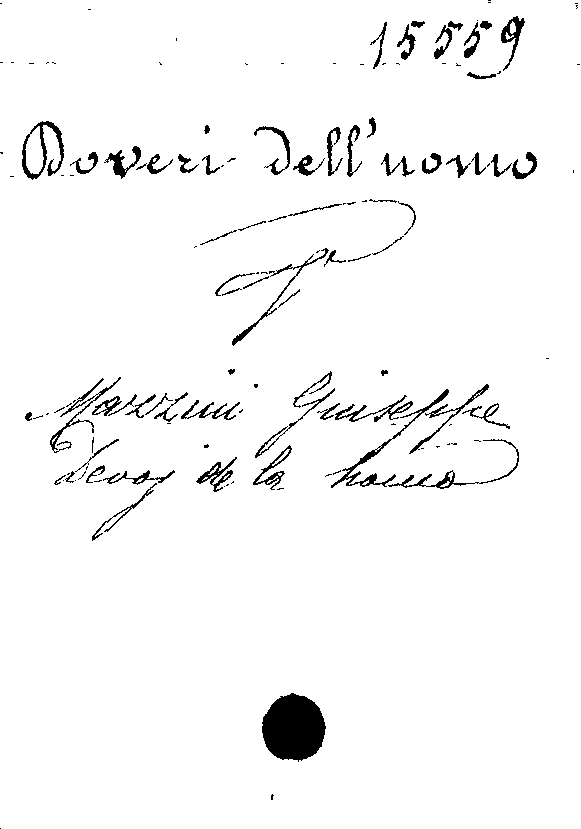 15559
Doveri dell'uomo
Mazzini Giuseppe
Devoj de la homo